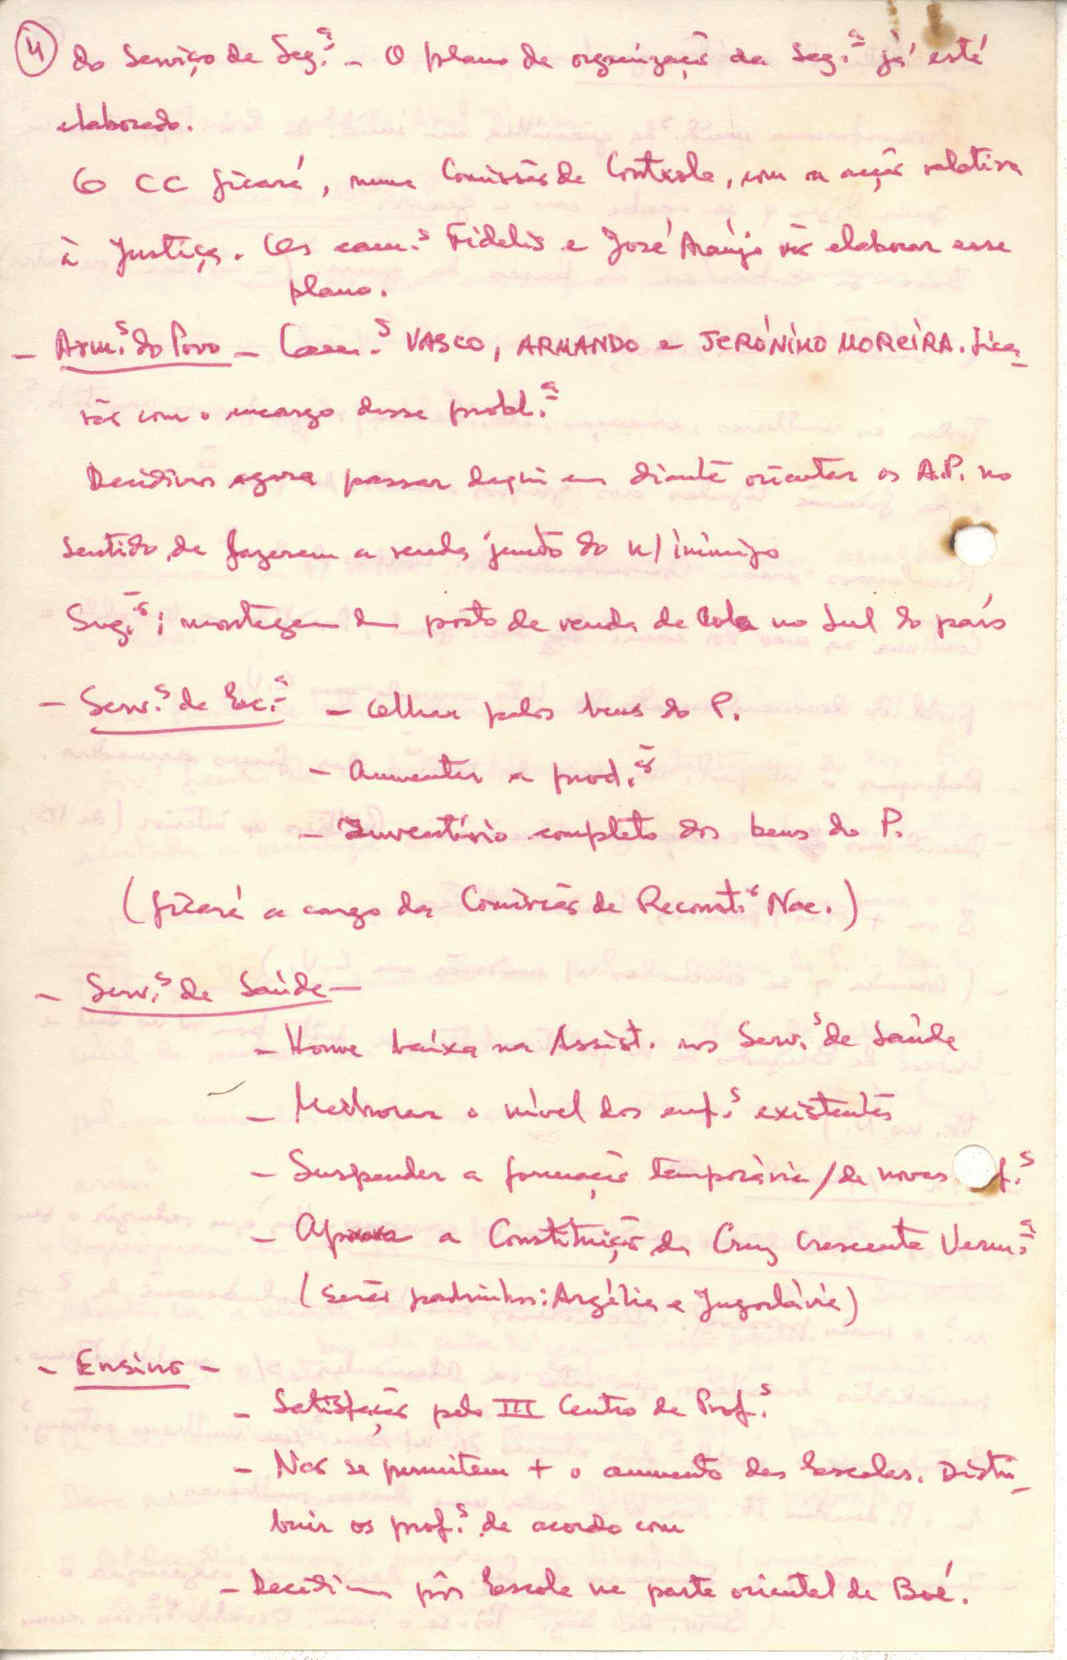 4 do Serviço de Seg.ª - O plano de organização da Seg.ª já está
elaborado.
O CC ficará, numa Comissão de Controle, com a acção relativa
à Justiça. Os cam.s Fidelis e José Araújo vão elaborar esse
plano.
- Arm.s do Povo - Cam.s VASCO, ARMANDO e JERÓNIMO MOREIRA. Fica-
rão com o encargo desse probl.ª
Decidimos agora passar daqui em diante orientar os A.P. no
sentido de fazerem a venda junto do n/ inimigo
Sug.ão: montagem dum posto de venda de Cola no Sul do país
- Serv.s de Ec.ª - Olhar pelos bens do P.
- Aumentar a prod.ão
- Inventário completo dos bens do P.
(ficará a cargo da Comissão de Reconst.ão Nac.)
- Serv.s de Saúde -
- Houve baixa na Assist. nos Serv.s de Saúde
- Melhorar o nível dos enf.s existentes
- Suspender a formação temporária / de novos f.s
- Aprova a Constituição da Cruz Crescente Verm.ª
(serão padrinhos: Argélia e Jugoslávia)
- Ensino -
- Satisfação pelo III Centro de Prof.s
- Não se permitem + o aumento das Escolas. Distri-
buir os prof.s de acordo com
- Decidiu pôr Escola na parte oriental de Boé.